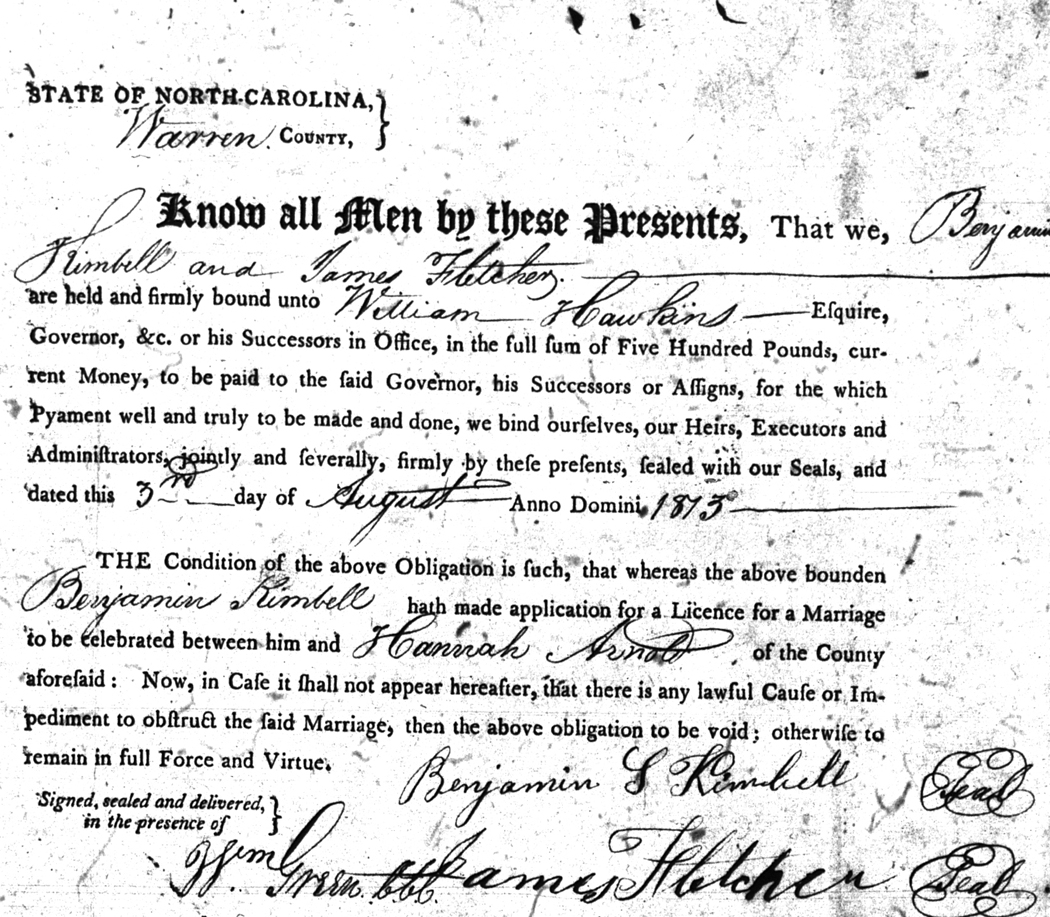 STATE OF NORTH-CAROLINA,
Warren COUNTY,
Know all Men by these Presents, That we, Benjamin
Kimbell and James Fletcher.
are held and firmly bound unto William Hawkins Eſquire,
Governor, &c. or his Successors in Office, in the full ſum of Five Hundred Pounds, cur-
rent Money, to be paid to the ſaid Governor, his Successors or Aſſigns, for the which
Pyament well and truly to be made and done, we bind ourſelves, our Heirs, Executors and
Adminiſtrators, jointly and ſeverally, firmly by theſe preſents, ſealed with our Seals, and
dated this 3rd day of August Anno Domini, 1813
THE Condition of the above Obligation is ſuch, that whereas the above bounden
Benjamin Kimbell hath made application for a Licence for a Marriage
to be celebrated between him and Hannah Arnold of the County
aforeſaid: Now, in Caſe it ſhall not appear hereafter, that there is any lawful Cauſe or Im-
pediment to obſtruct the ſaid Marriage, then the above obligation to be void; otherwiſe to
remain in full Force and Virtue.
Benjamin S Kimbell Seal
Signed, sealed and delivered,
in the presence of
Wm Green
James Fletcher Seal